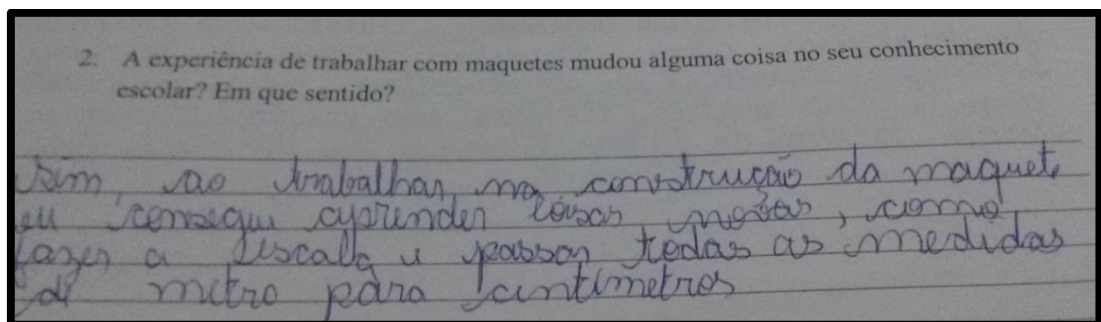 2. A experiência de trabalhar com maquetes mudou alguma coisa no seu conhecimento
escolar? Em que sentido?
Sim, ao trabalhar na construção da maquete
eu consegui aprender coisas novas, como
fazer a escala e passar todas as medidas
de metro para centimetros